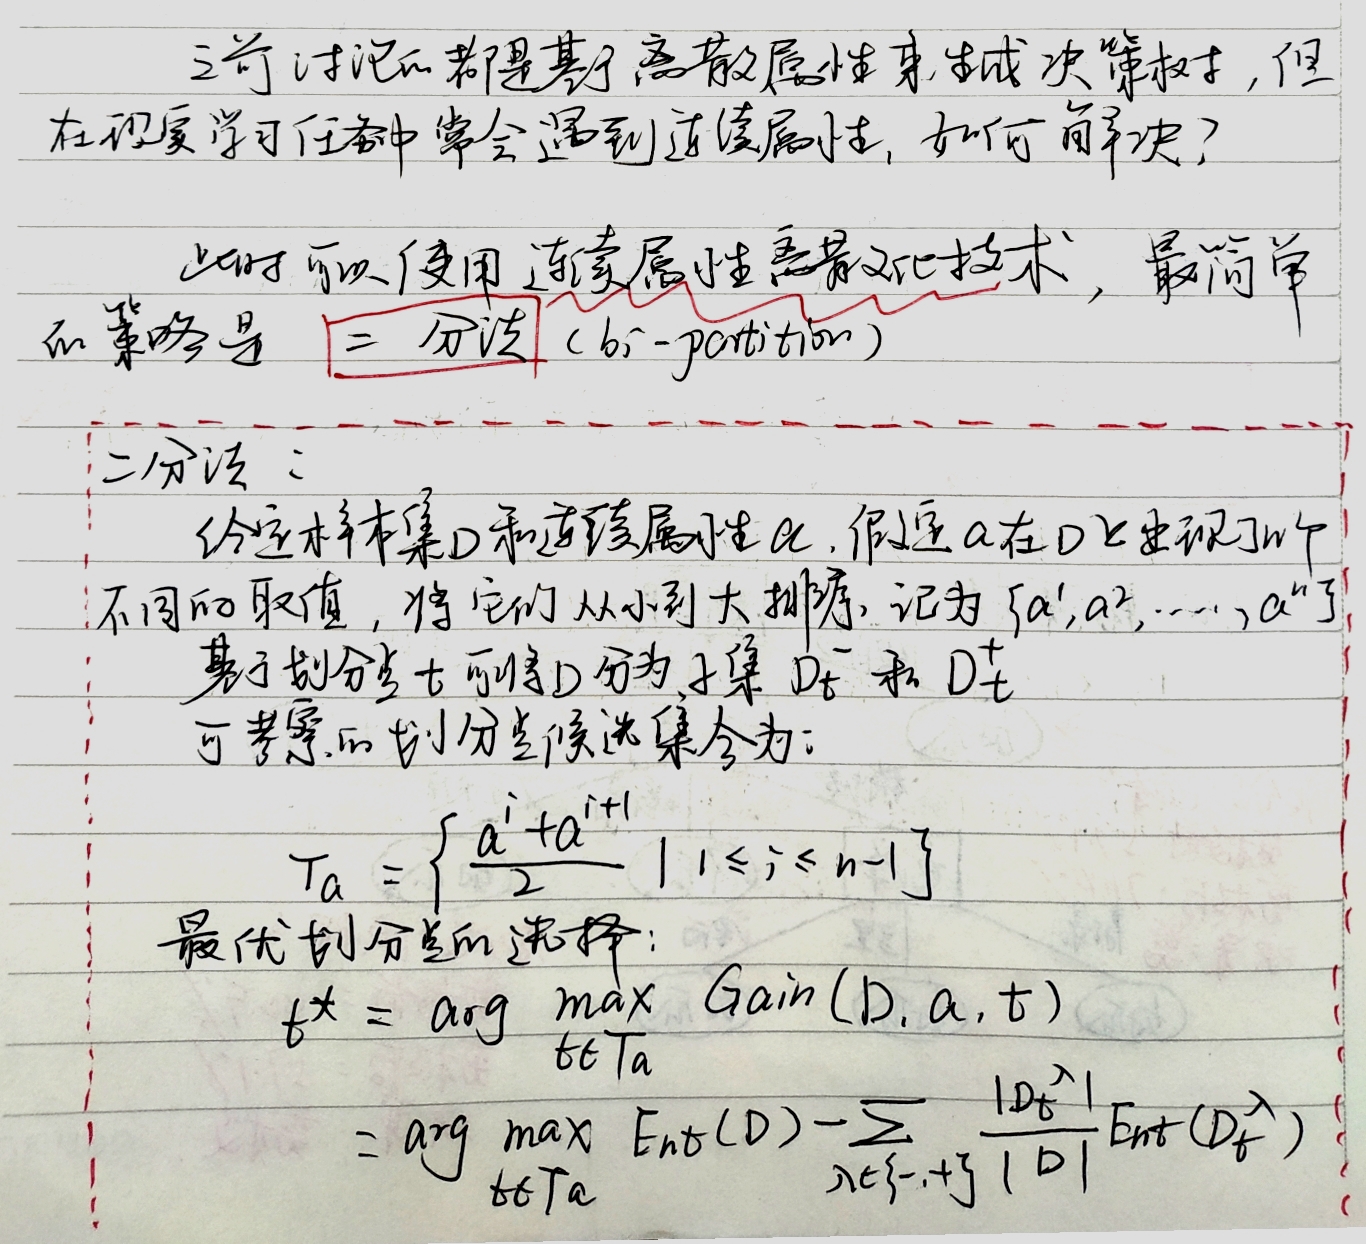 之前讨论的都是基于离散属性来生成决策树,但
在现实学习任务中常会遇到连续属性,如何解决?
此时可以使用连续属性离散化技术,最简单
的策略是 二分法 (bi-partition)
二分法:
给定样本集D和连续属性a,假定a在D上出现了n个
不同的取值,将它们从小到大排序,记为{a¹,a²,……,aⁿ}
基于划分点t可将D分为子集 Dₜ⁻ 和 Dₜ⁺
可考察的划分点候选集合为:
Tₐ = { (aⁱ+aⁱ⁺¹)/2 | 1≤i≤n-1 }
最优划分点的选择:
t* = arg max_{t∈Tₐ} Gain(D,a,t)
= arg max_{t∈Tₐ} Ent(D) - Σ_{λ∈{-,+}} |Dₜ^λ|/|D| Ent(Dₜ^λ)